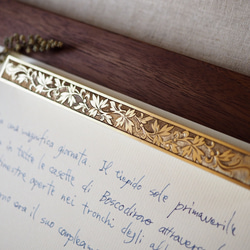 una magnifica giornata. Il tiepido sole primaverile
in tutte le casette di Boscodirovo attraverso
finestre aperte nei tronchi degli
era il suo compleanno